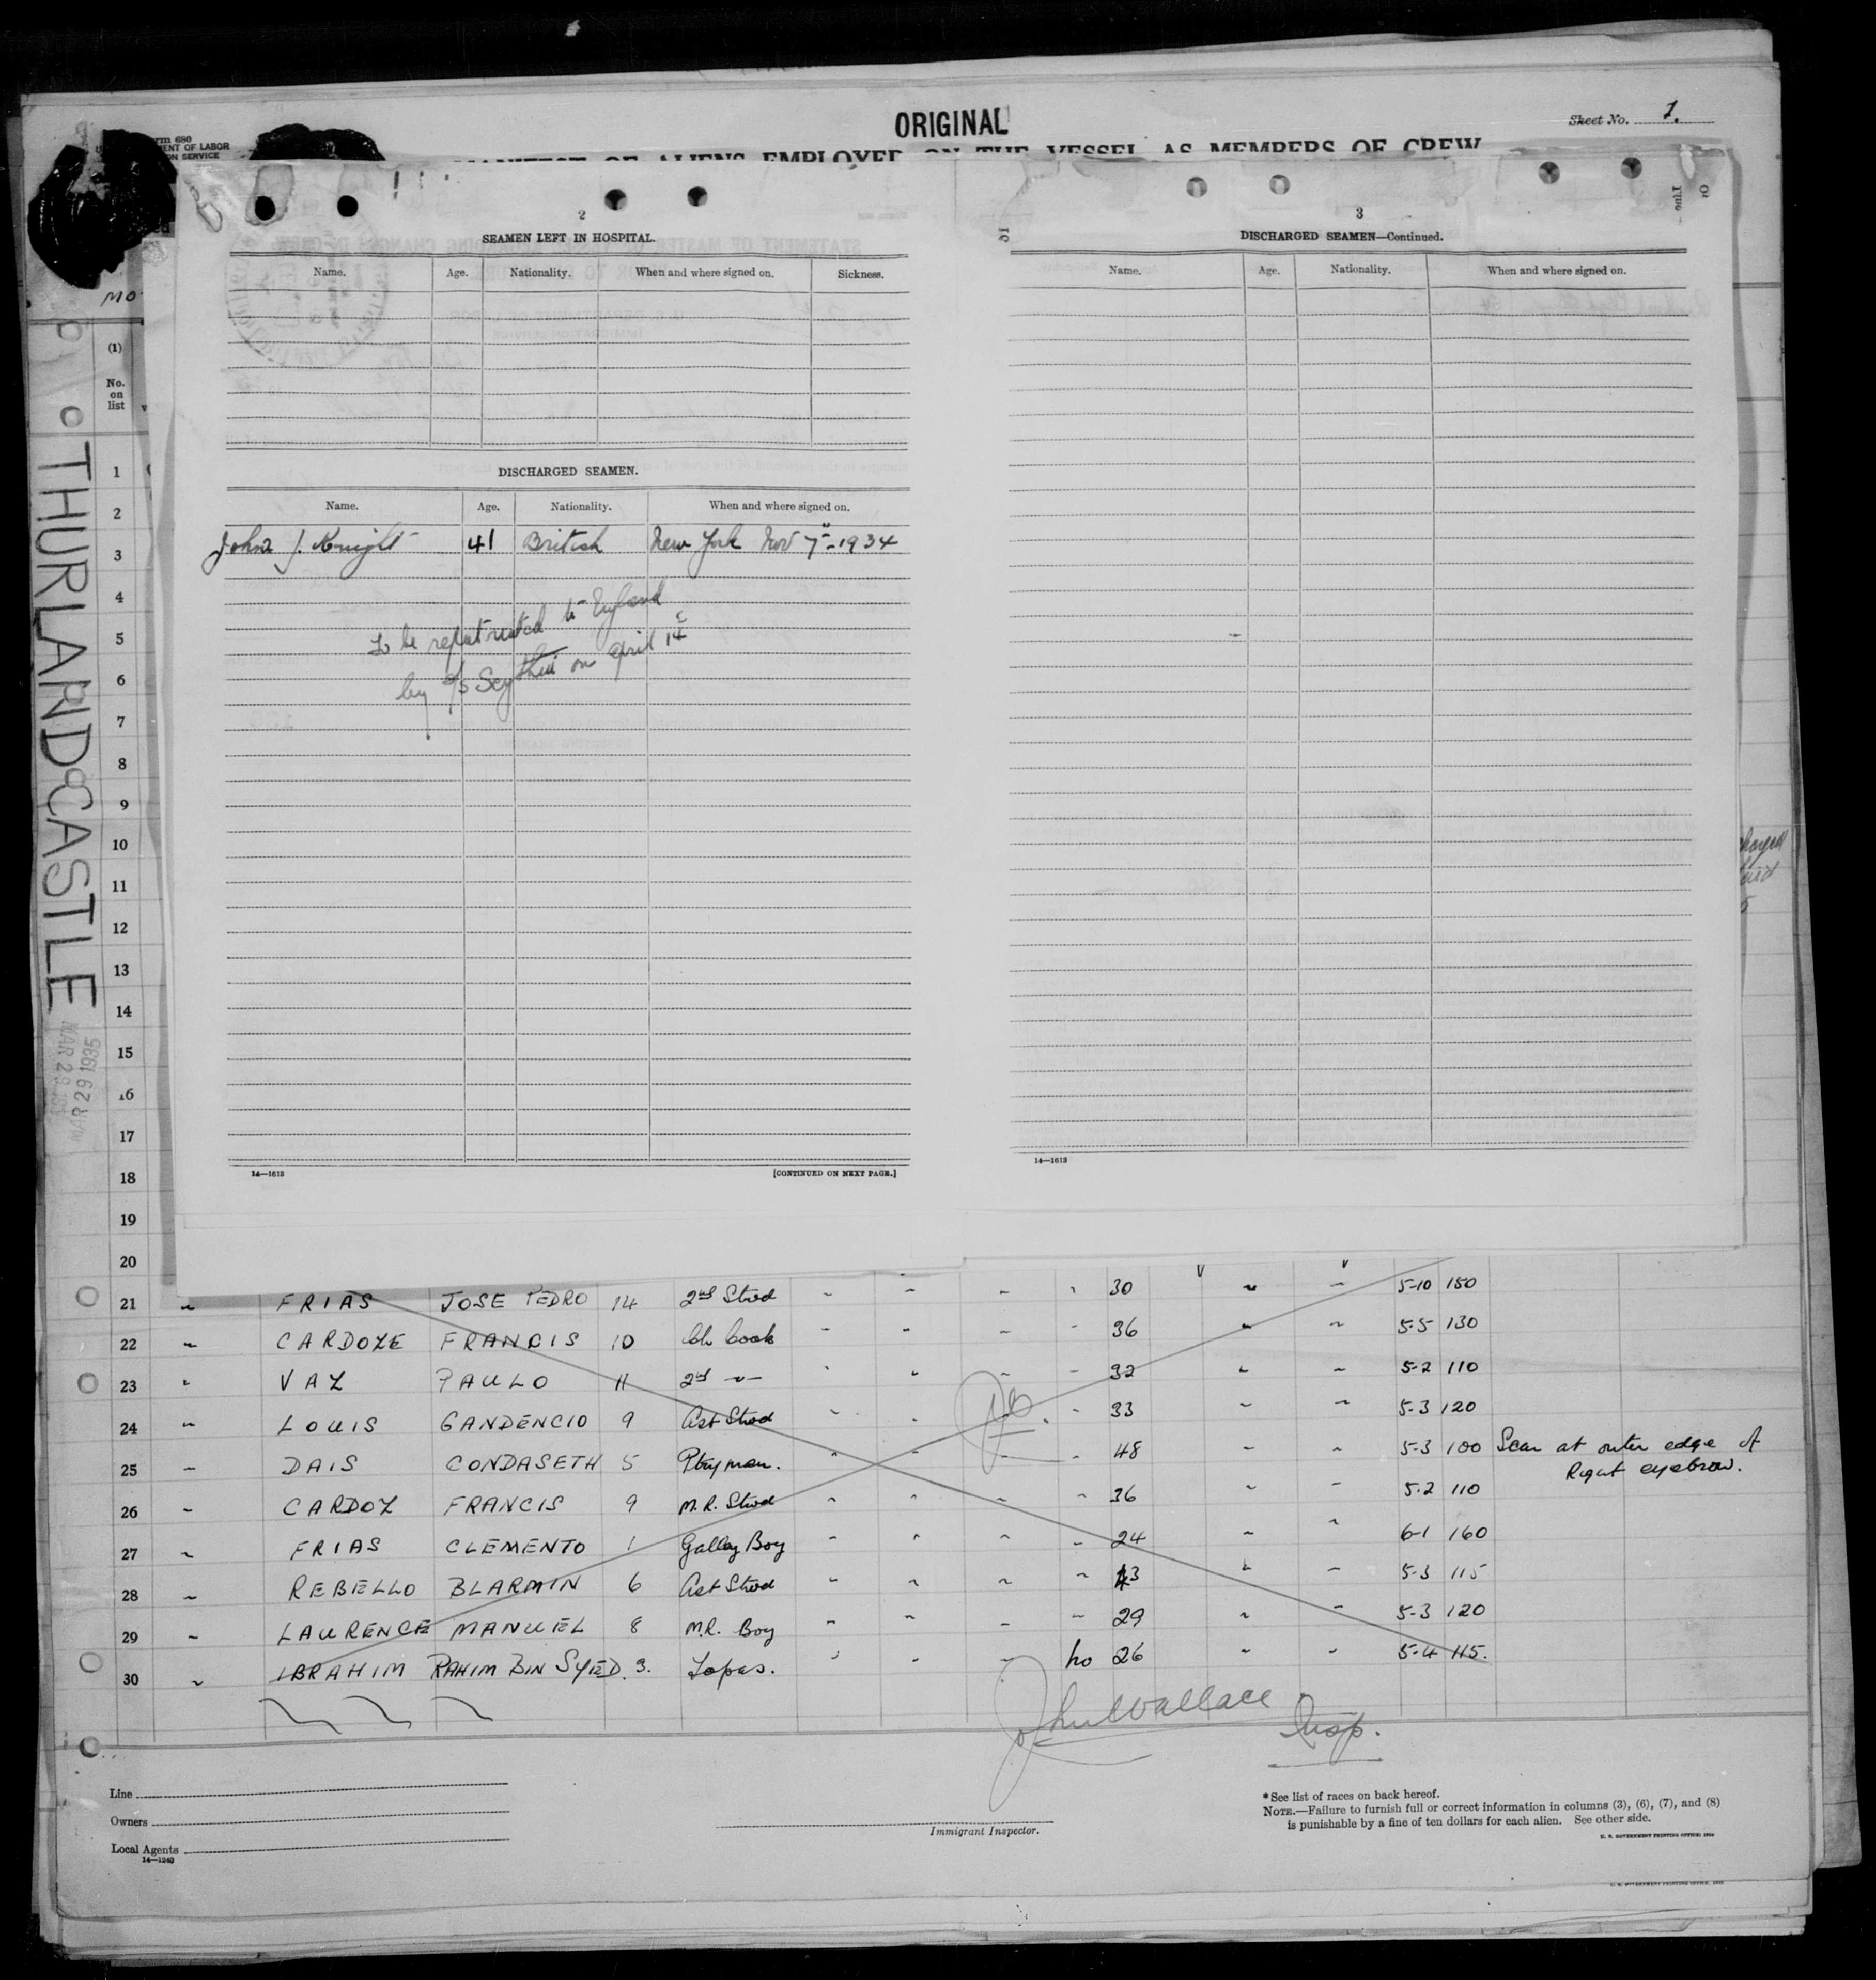 ORIGINAL
Sheet No. 1.
MANIFEST OF ALIENS EMPLOYED ON THE VESSEL AS MEMBERS OF CREW
rm 680
MENT OF LABOR
ON SERVICE
MO
(1)
No.
on
list
THURLAND CASTLE
MAR 29 1935
2
SEAMEN LEFT IN HOSPITAL.
Name. Age. Nationality. When and where signed on. Sickness.
DISCHARGED SEAMEN.
Name. Age. Nationality. When and where signed on.
John J. Knight 41 British New York Nov 7th 1934
To be repatriated to England
by s/s Scythia on April 1st
14—1613 [CONTINUED ON NEXT PAGE.]
3
DISCHARGED SEAMEN—Continued.
Name. Age. Nationality. When and where signed on.
14—1613
1
2
3
4
5
6
7
8
9
10
11
12
13
14
15
16
17
18
19
20
21 " FRIAS JOSE PEDRO 14 2nd Stwd 30 5-10 150
22 " CARDOZE FRANCIS 10 Ch Cook 36 5-5 130
23 " VAZ PAULO 11 2nd " 32 5-2 110
24 " LOUIS GANDENCIO 9 Ast Stwd 33 5-3 120
25 " DAIS CONDASETH 5 Ptryman. 48 5-3 100 Scar at outer edge of
Right eyebrow.
26 " CARDOZ FRANCIS 9 M.R. Stwd 36 5-2 110
27 " FRIAS CLEMENTO 1 Galley Boy 24 6-1 160
28 " REBELLO BLARMIN 6 Ast Stwd 43 5-3 115
29 " LAURENCE MANUEL 8 M.R. Boy 29 5-3 120
30 " IBRAHIM RAHIM BIN SYED. 3. Topas. no 26 5-4 115.
John Wallace Insp.
Line
Owners
Local Agents
14—1240
Immigrant Inspector.
*See list of races on back hereof.
NOTE.—Failure to furnish full or correct information in columns (3), (6), (7), and (8)
is punishable by a fine of ten dollars for each alien. See other side.